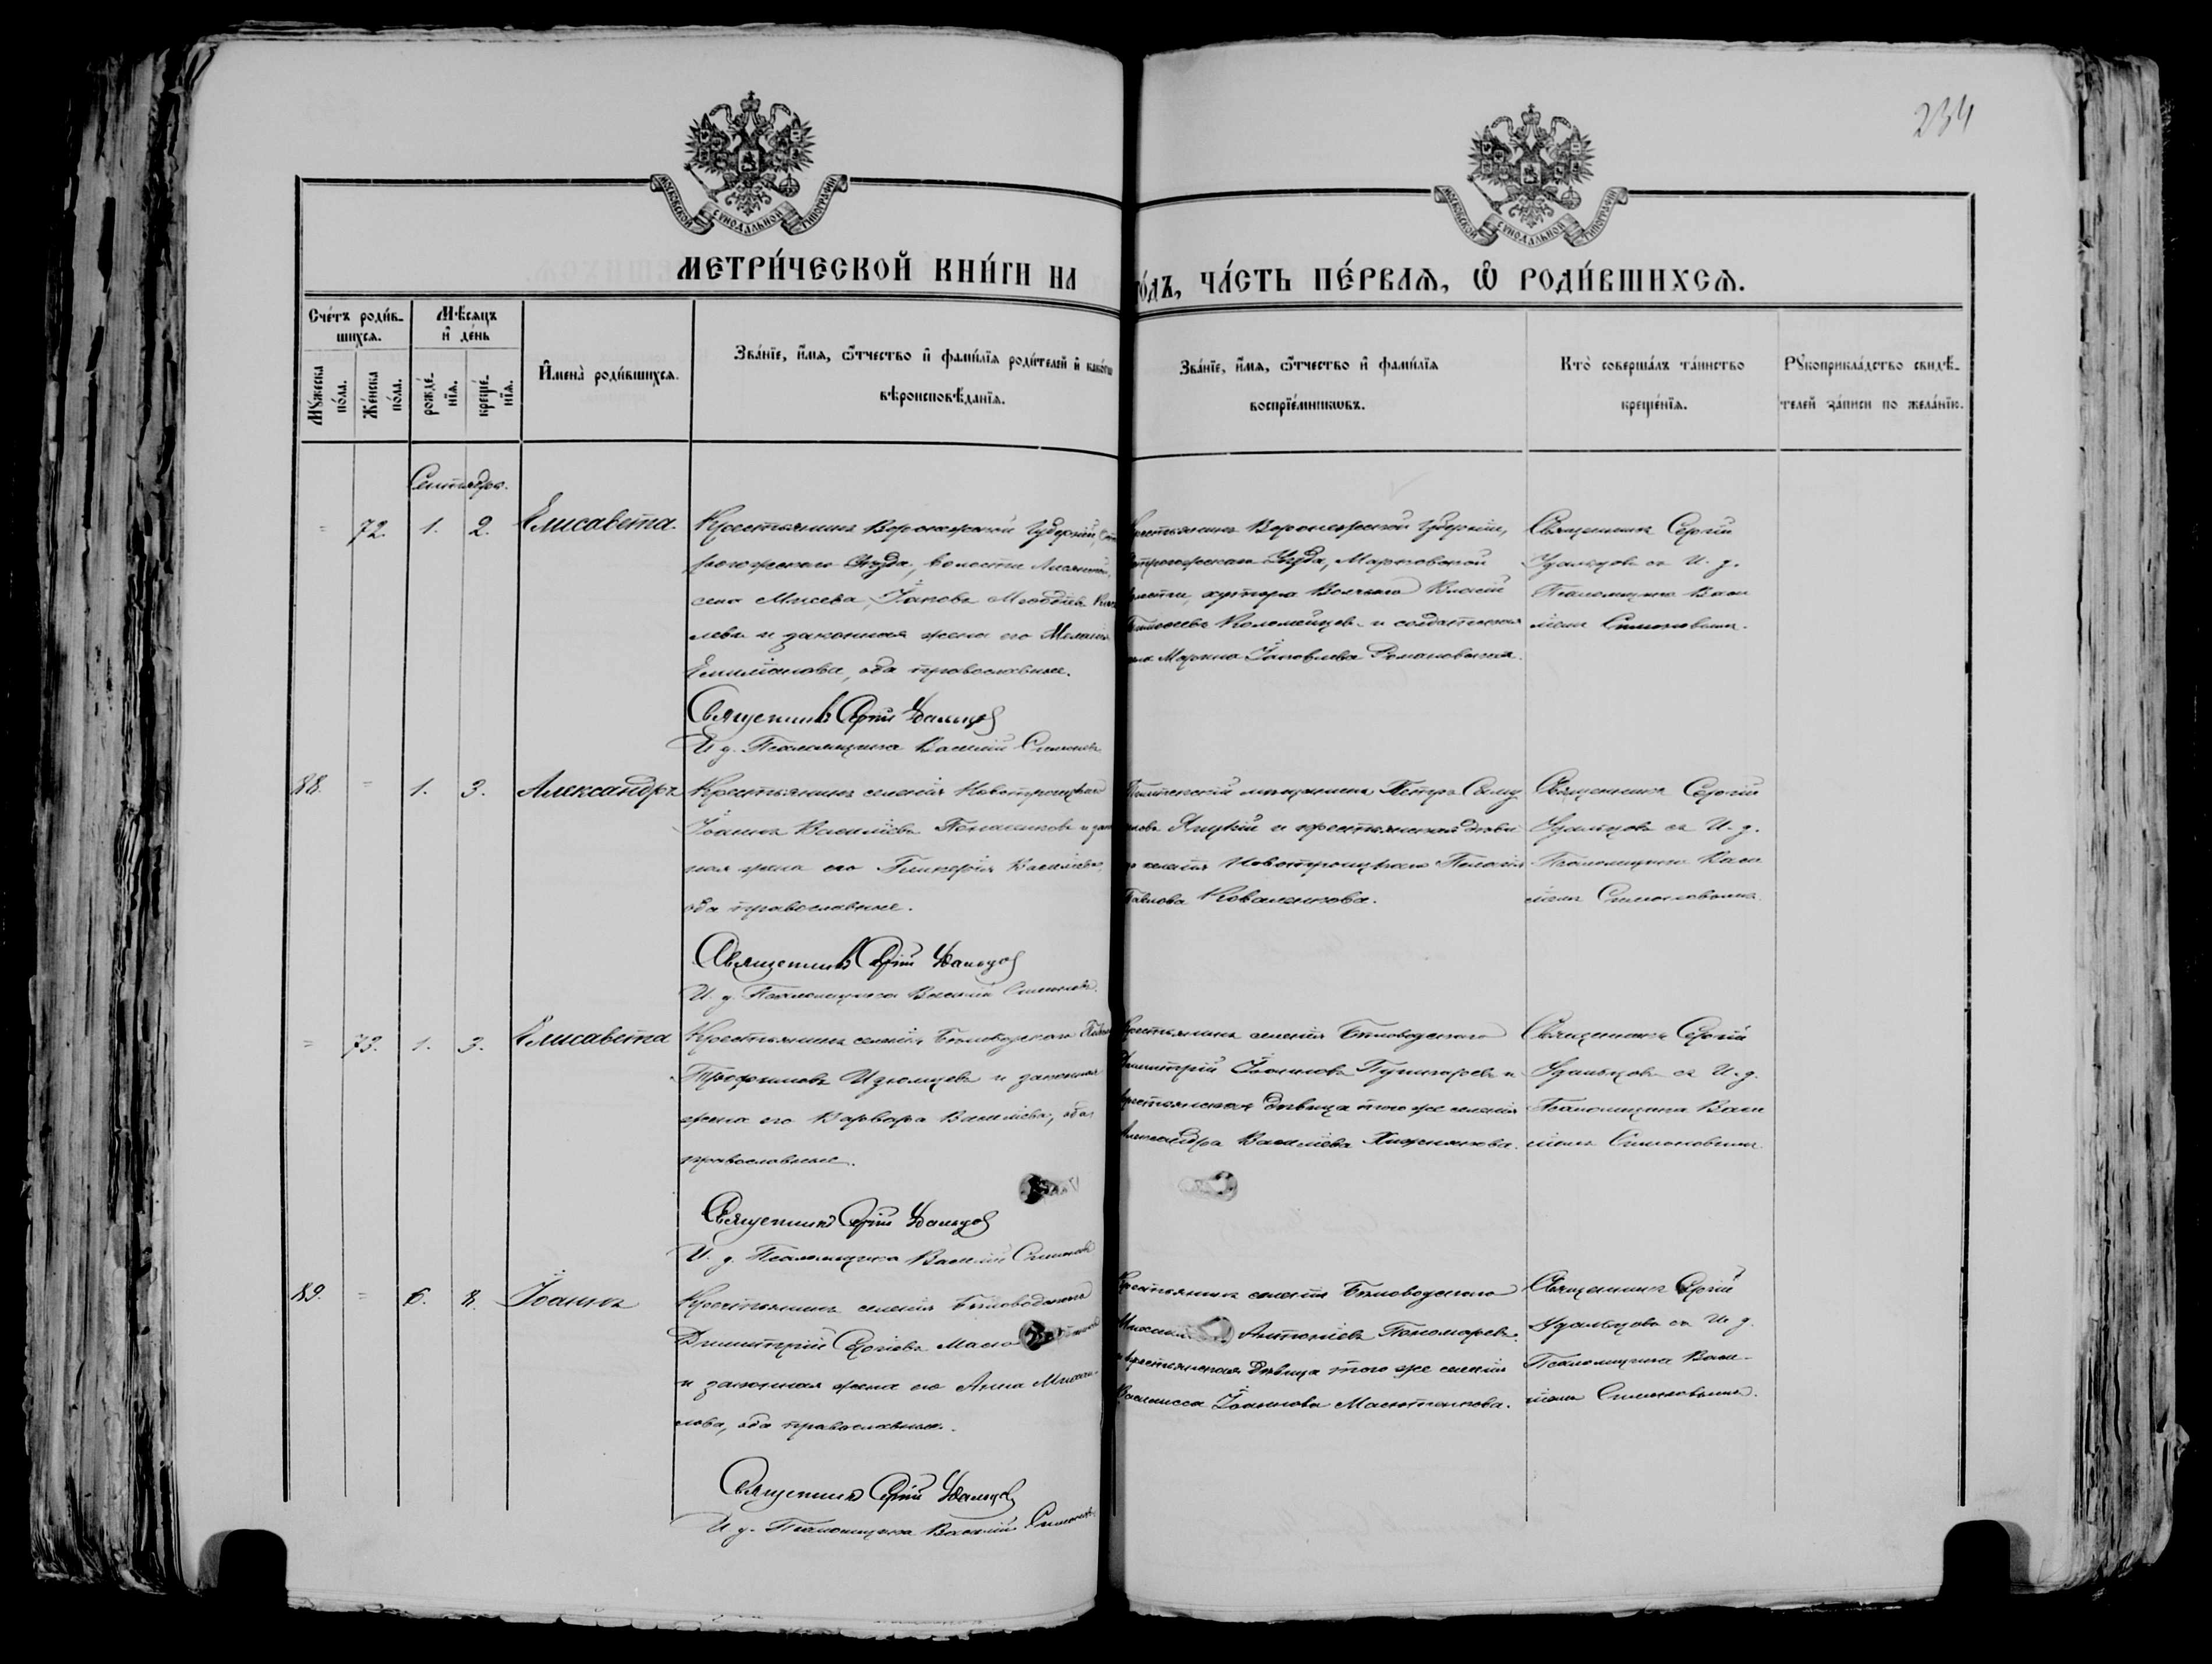 234
МОСКОВСКОЙ СѴНОДАЛЬНОЙ ТИПОГРАФІИ
МОСКОВСКОЙ СѴНОДАЛЬНОЙ ТИПОГРАФІИ
МЕТРИ́ЧЕСКОЙ КНИ́ГИ НА
го́дъ, ЧА́СТЬ ПЕ́РВАѦ, Ѡ҆ РОДИ́ВШИХСѦ.
Сче́тъ роди́в-
шихсѧ.
Мѣ́сѧцъ
и҆ де́нь
Мꙋ́жеска по́ла.
Же́нска по́ла.
рожде́-нїѧ.
креще́-нїѧ.
И҆мена̀ роди́вшихсѧ.
Зва́нїе, и҆́мѧ, ѻ҆́тчество и҆ фамі́лїѧ роди́телей и҆ како́гѡ
вѣроисповѣ́данїѧ.
Зва́нїе, и҆́мѧ, ѻ҆́тчество и҆ фамі́лїѧ
воспрїе́мникѡвъ.
Кто̀ соверша́лъ та́инство
креще́нїѧ.
Рꙋкоприкла́дство свидѣ́-
телей за́писи по жела́нїю.
Сентября.
= 72. 1. 2. Елисавета.
Крестьянинъ Воронежской Губерніи,
рогожскаго Уѣзда, волости
села Іаковъ
левъ и законная жена его Меланія
Емиліанова, оба православные.
Священникъ Сергій Удальцовъ
И. д. Псаломщика Василій Симоновъ
Крестьянинъ Воронежской Губерніи,
Острогожскаго Уѣзда, Марковской
волости, хутора Власій
Тимоѳеевъ Коломейцевъ и солдатская
Марина Іаковлева Романовская.
Священникъ Сергій
Удальцовъ съ И. д.
Псаломщика Васи
ліемъ Симоновымъ.
88. = 1. 3. Александръ
Крестьянинъ селенія Новотроицкаго
Іоаннъ Василіевъ
ная жена его Гликерія Василіева,
оба православные.
Священникъ Сергій Удальцовъ
И. д. Псаломщика Василій Симоновъ.
мѣщанинъ Петръ
Яцкій и крестьянская дѣви
ца селенія Новотроицкаго Пелагія
Павлова Коваленкова.
Священникъ Сергій
Удальцовъ съ И. д.
Псаломщика Васи
ліемъ Симоновымъ.
= 73. 1. 3. Елисавета
Крестьянинъ селенія Бѣловодскаго
Трофимовъ Изюмцевъ и законная
жена его Варвара Василіева, оба
православные.
Священникъ Сергій Удальцовъ
И. д. Псаломщика Василій Симоновъ
Крестьянинъ селенія Бѣловодскаго
Димитрій Іоанновъ Пушкаревъ и
крестьянская дѣвица того же селенія
Александра Василіева
Священникъ Сергій
Удальцовъ съ И. д.
Псаломщика Васи
ліемъ Симоновымъ.
89. = 6. 8. Іоаннъ
Крестьянинъ селенія Бѣловодскаго
Димитрій Сергіевъ
и законная жена его Анна Михаи-
лова, оба православные.
Священникъ Сергій Удальцовъ
И. д. Псаломщика Василій Симоновъ.
Крестьянинъ селенія Бѣловодскаго
Антоніевъ Пономаревъ
и крестьянская дѣвица того же селенія
Василисса Іоаннова Масютенкова.
Священникъ Сергій
Удальцовъ съ И. д.
Псаломщика Васи-
ліемъ Симоновымъ.